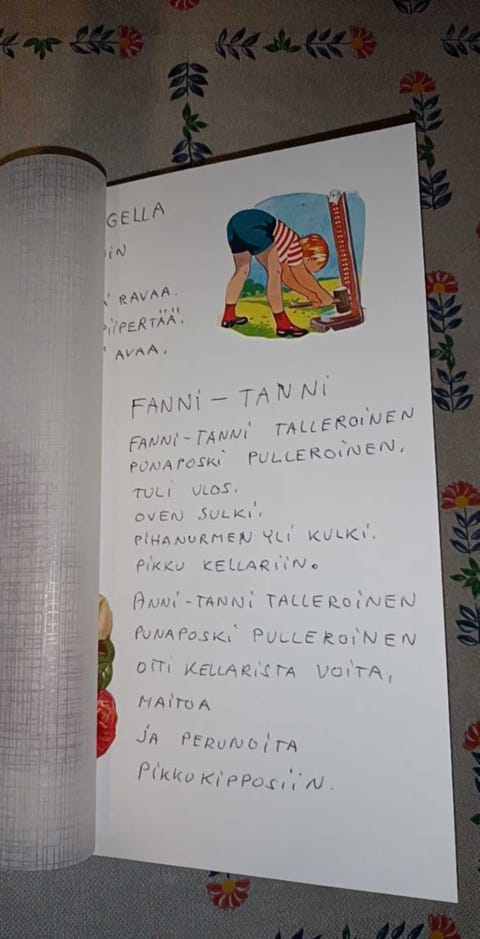 GELLA
RAVAA.
AVAA.
FANNI - TANNI
FANNI-TANNI TALLEROINEN
PUNAPOSKI PULLEROINEN.
TULI ULOS.
OVEN SULKI.
PIHANURMEN YLI KULKI.
PIKKU KELLARIIN.
ANNI-TANNI TALLEROINEN
PUNAPOSKI PULLEROINEN
OTTI KELLARISTA VOITA,
MAITOA
JA PERUNOITA
PIKKUKIPPOSIIN.